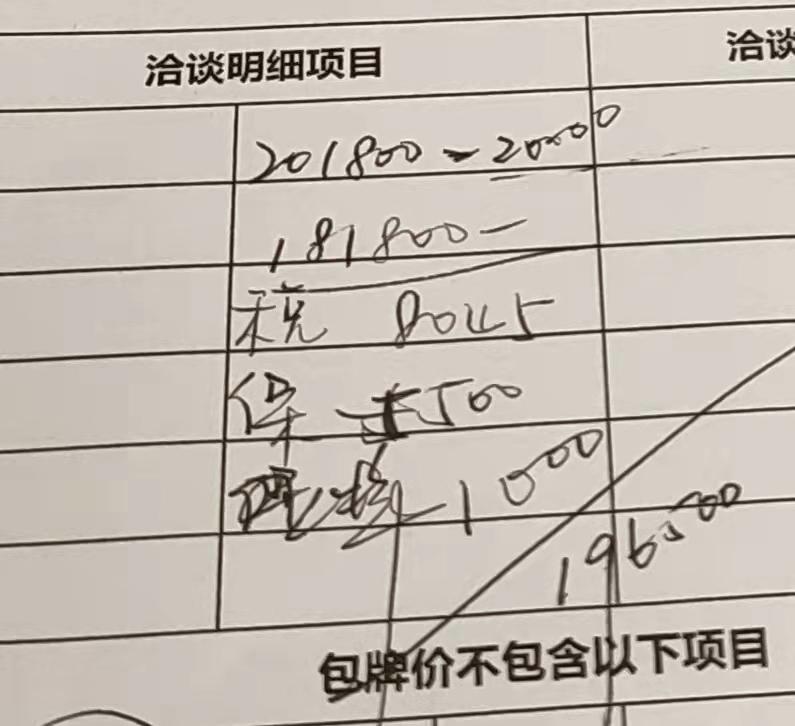 洽谈明细项目
洽谈
201800-20000
181800-
税 8045
保 5500
1000
196500
包牌价不包含以下项目